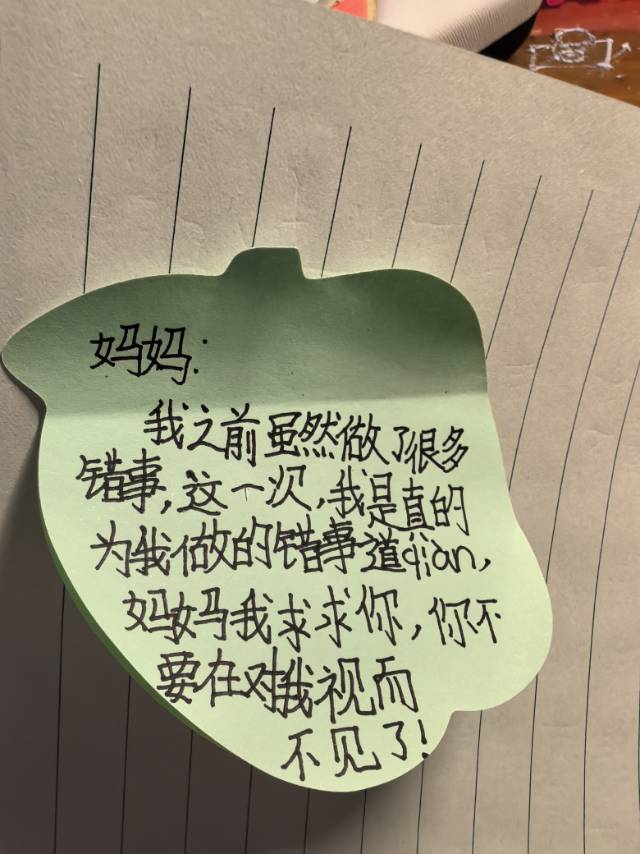 妈妈:
我之前虽然做了很多
错事,这一次,我是真的
为我做的错事道qian,
妈妈我求求你,你不
要在对我视而
不见了!